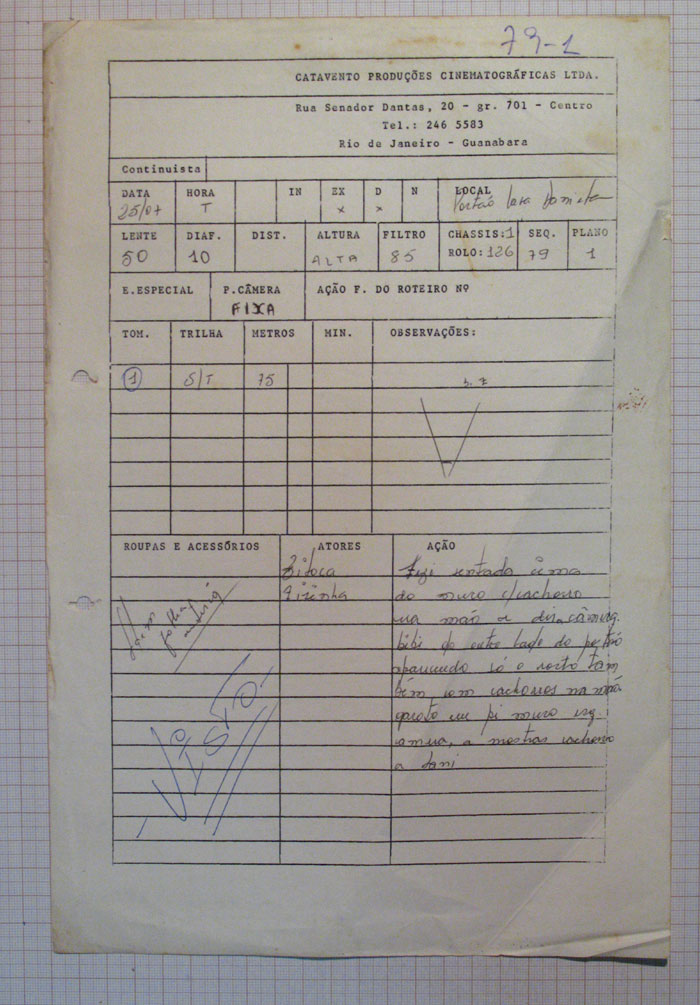 79-1
CATAVENTO PRODUÇÕES CINEMATOGRÁFICAS LTDA.
Rua Senador Dantas, 20 - gr. 701 - Centro
Tel.: 246 5583
Rio de Janeiro - Guanabara
Continuista
DATA HORA IN EX D N LOCAL
25/07 T x x Portão Casa
LENTE DIAF. DIST. ALTURA FILTRO CHASSIS:1 SEQ. PLANO
50 10 ALTA 85 ROLO:126 79 1
E.ESPECIAL P.CÂMERA AÇÃO F. DO ROTEIRO Nº
FIXA
TOM. TRILHA METROS MIN. OBSERVAÇÕES:
1 S/T 75
ROUPAS E ACESSÓRIOS ATORES AÇÃO
sentado cima
do muro c/cachorro
na mão a dir. câmera.
bibi do outro lado do portão
aparecendo só o rosto tam
bém com cachorros na mão
garoto em pé muro esq.
camera, a mostrar cachorro
a dani
VISTO